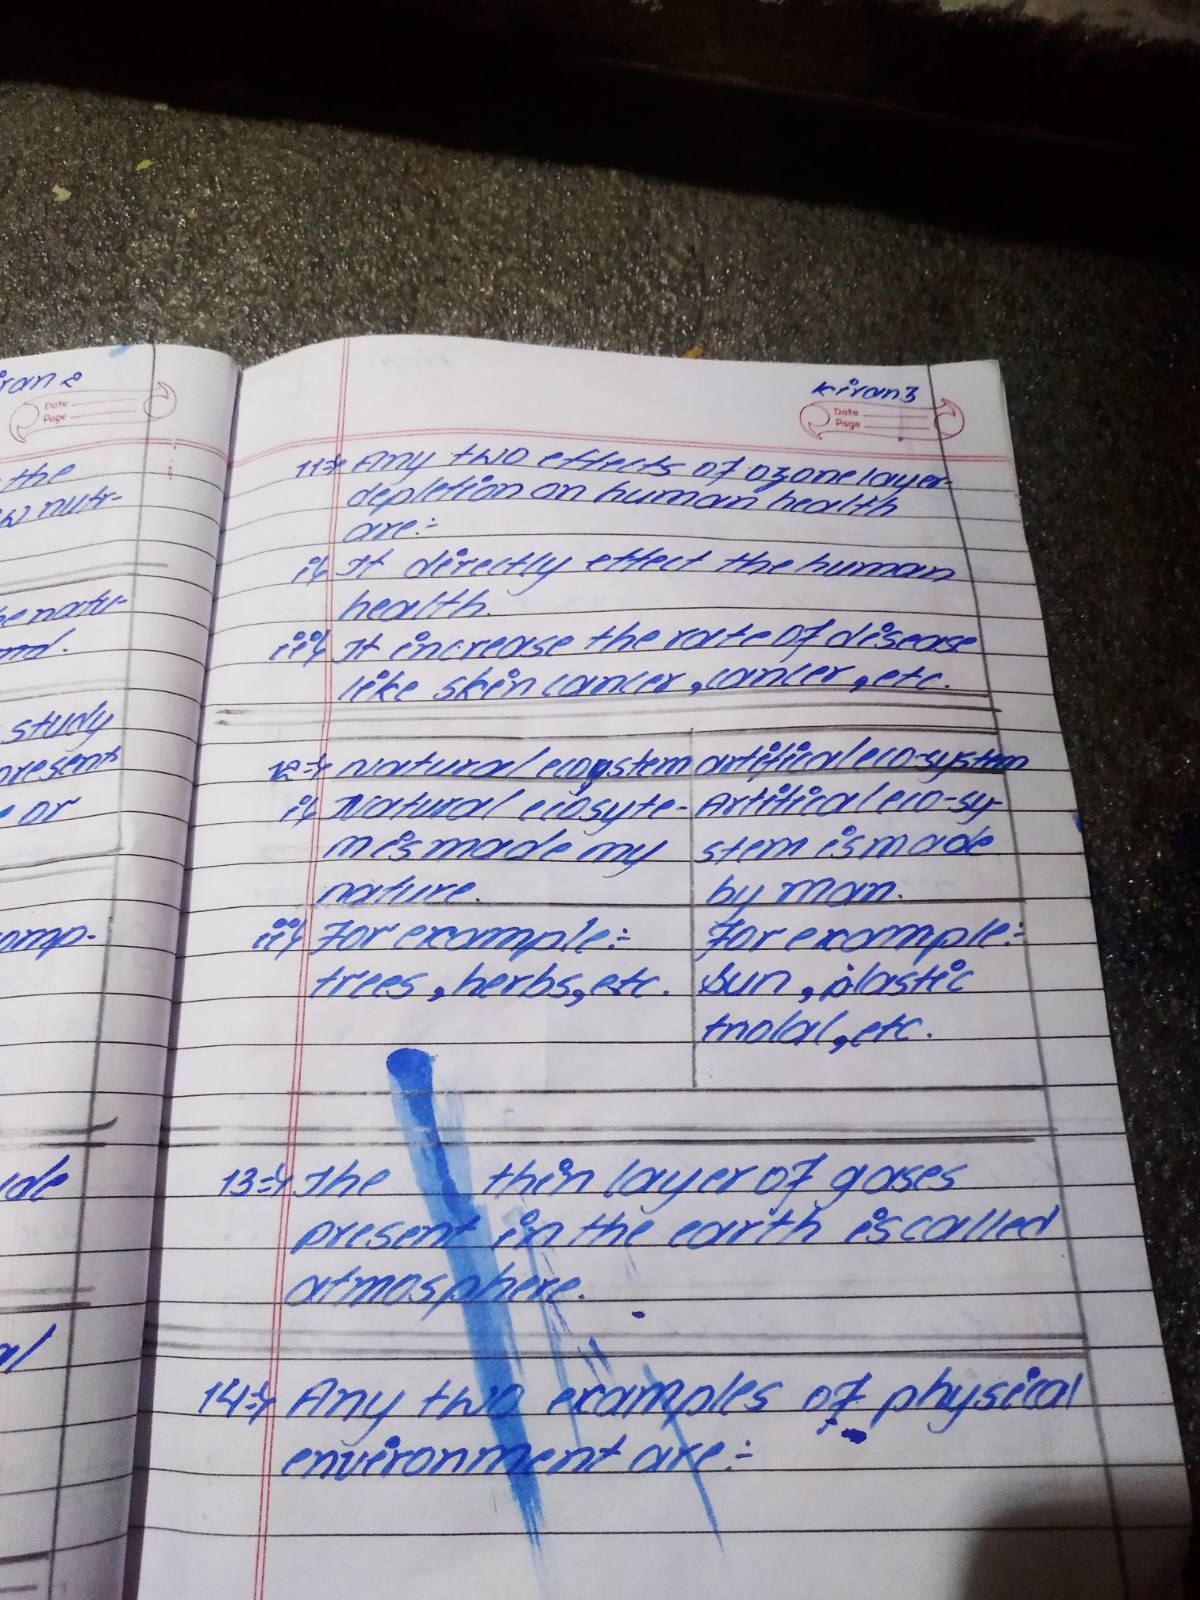 iran 2
Date
Page
the
w nutr-
he natu-
nd.
study
present
e or
comp-
ide
al
Kiran 3
Date
Page
11⇒ Any two effects of ozone layer
depletion on human health
are:-
i) It directly effect the human
health.
ii) It increase the rate of disease
like skin cancer, cancer, etc.
12⇒ Natural ecopstem artifical eco-system
i) Natural ecosyte- Artifical eco-sy-
m is made my stem is made
nature. by man.
ii) For example:- For example:-
trees, herbs, etc. Sun, plastic
etc.
13⇒ The thin layer of gases
present in the earth is called
atmosphere.
14⇒ Any two examples of physical
environment are:-